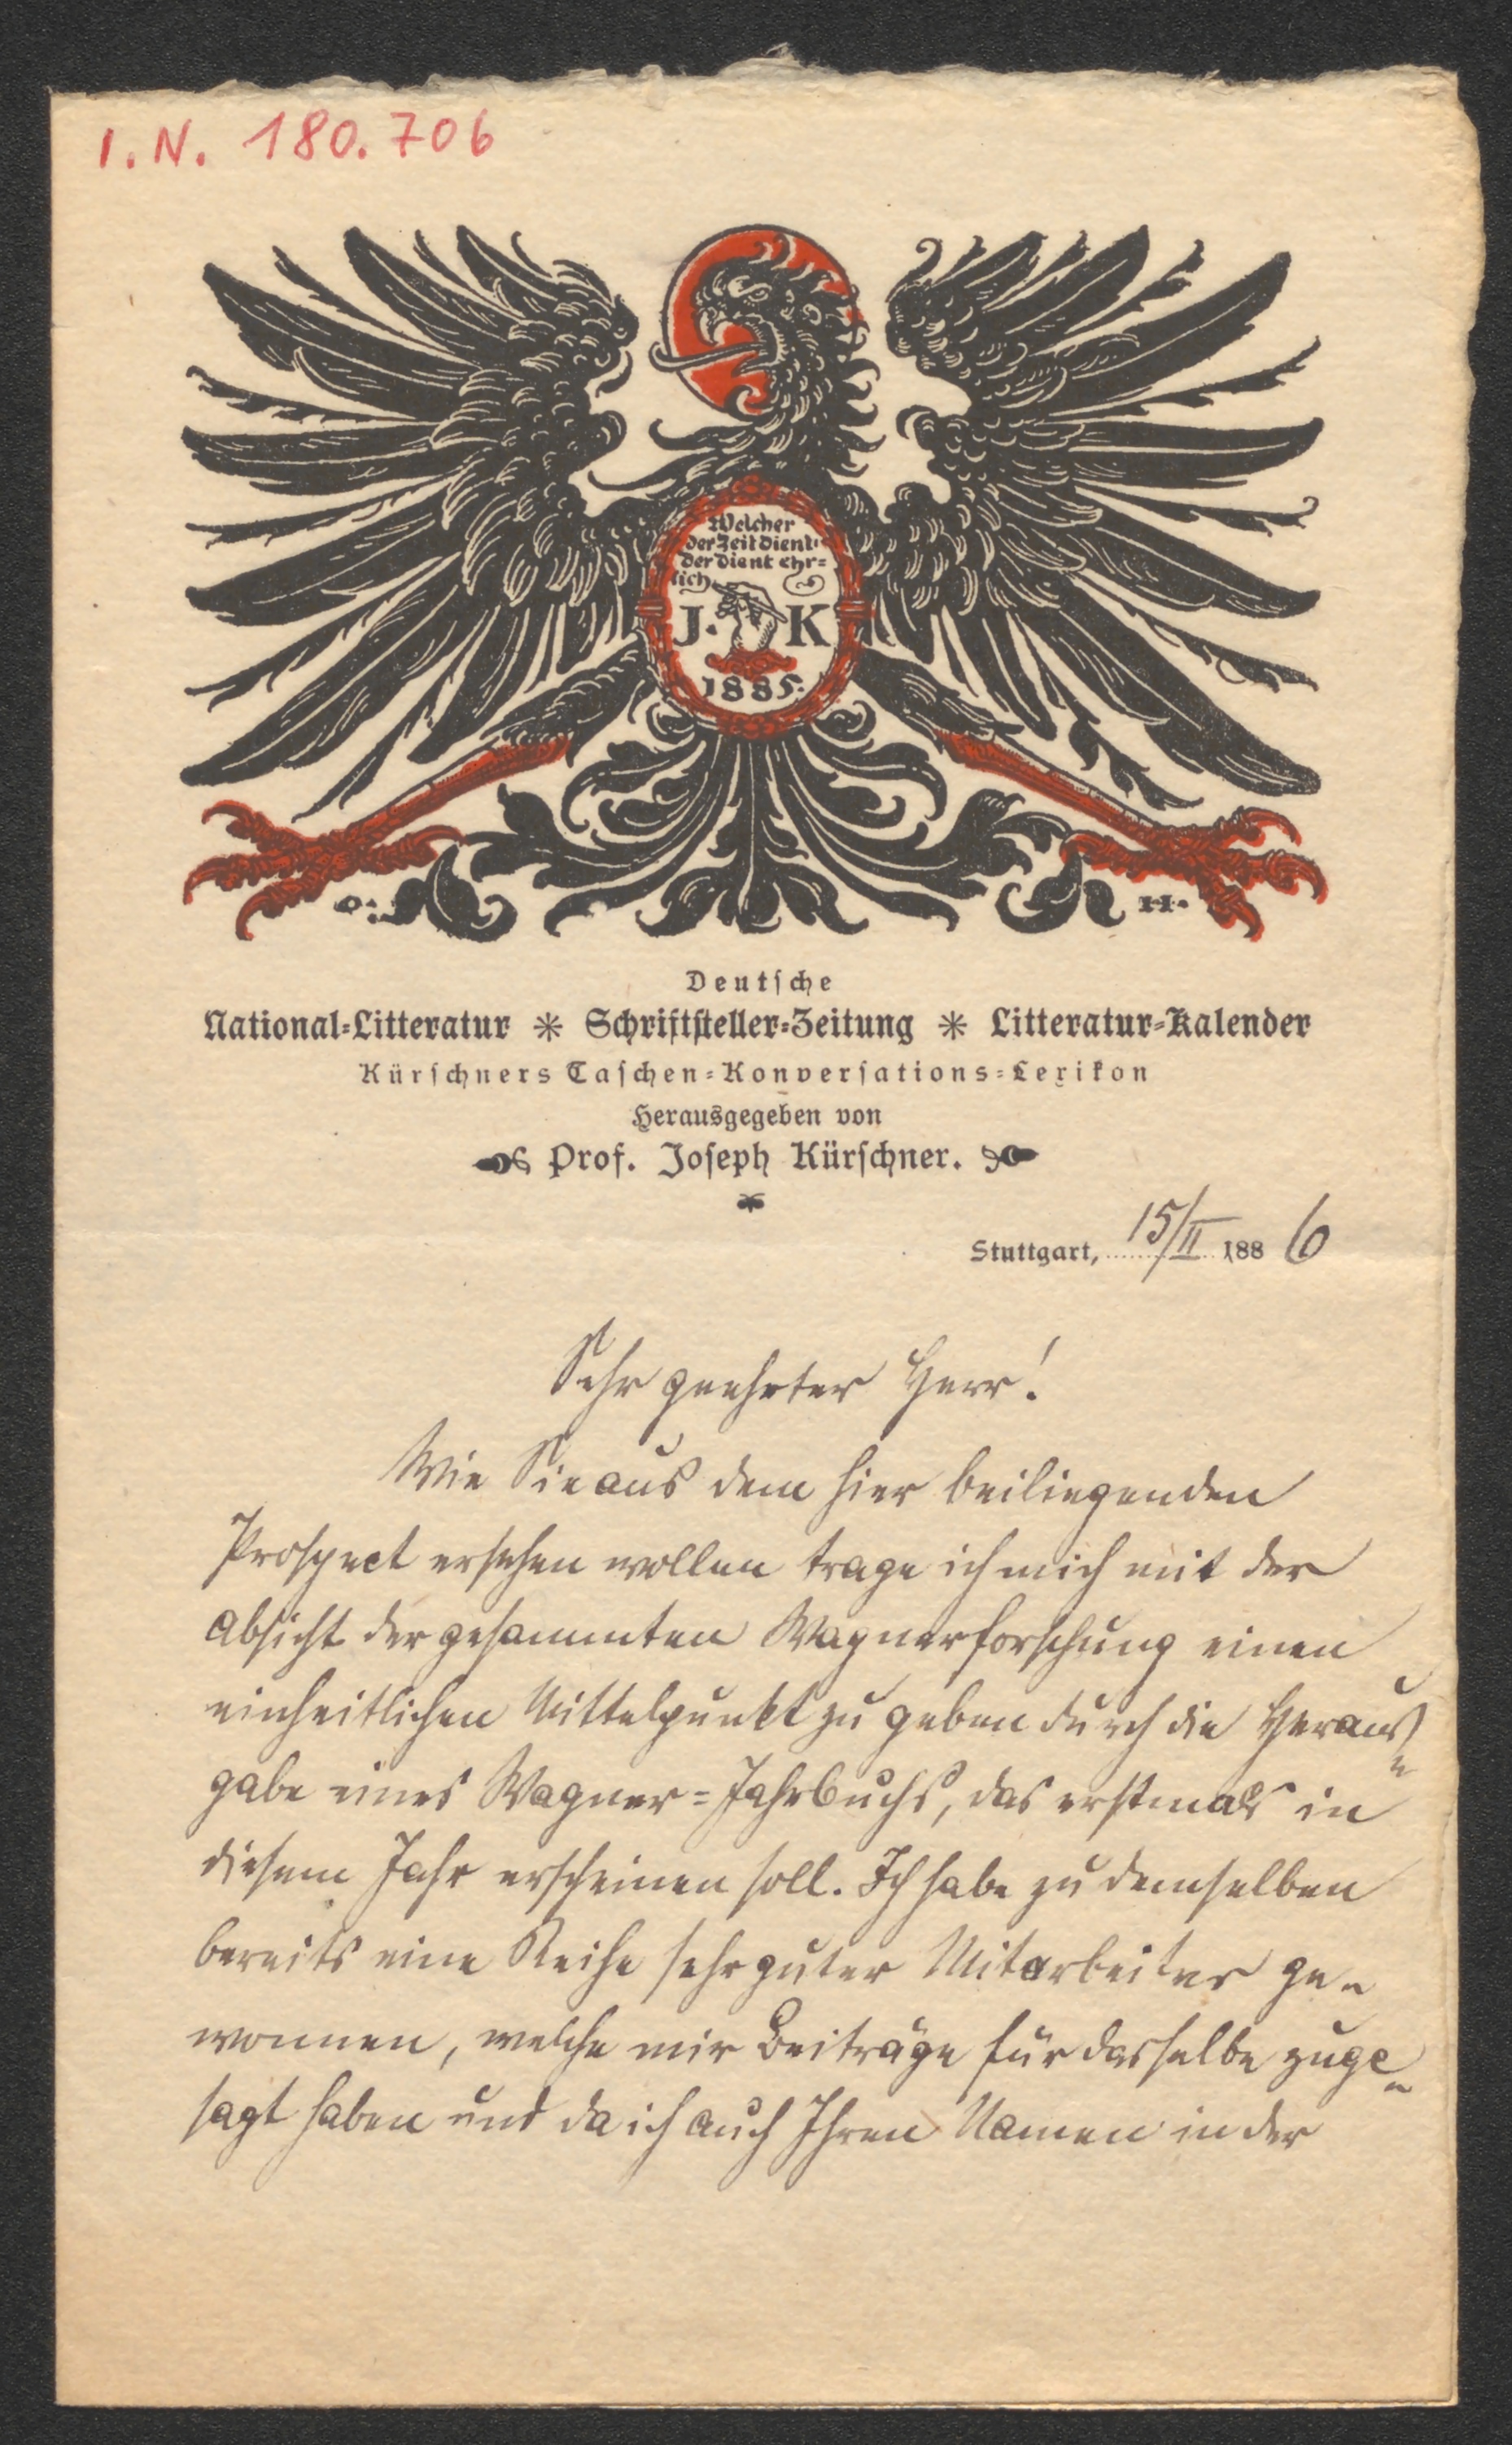 I.N. 180.706
Welcher
der Zeit dient
der dient ehr=
lich
J. K
1885.
O. H.
Deutsche
National=Litteratur * Schriftsteller=Zeitung * Litteratur=Kalender
Kürschners Taschen=Konversations=Lexikon
Herausgegeben von
Prof. Joseph Kürschner.
Stuttgart, 15/II 1886
Sehr geehrter Herr!
Wie Sie aus dem hier beiliegenden
Prospect ersehen wollen trage ich mich mit der
Absicht der gesammten Wagnerforschung einen
einheitlichen Mittelpunkt zu geben durch die Heraus=
gabe eines Wagner=Jahrbuchs, das erstmals in
diesem Jahr erscheinen soll. Ich habe zu demselben
bereits eine Reihe sehr guter Mitarbeiter ge=
wonnen, welche mir Beiträge für dasselbe zuge=
sagt haben und da ich auch Ihren Namen in der